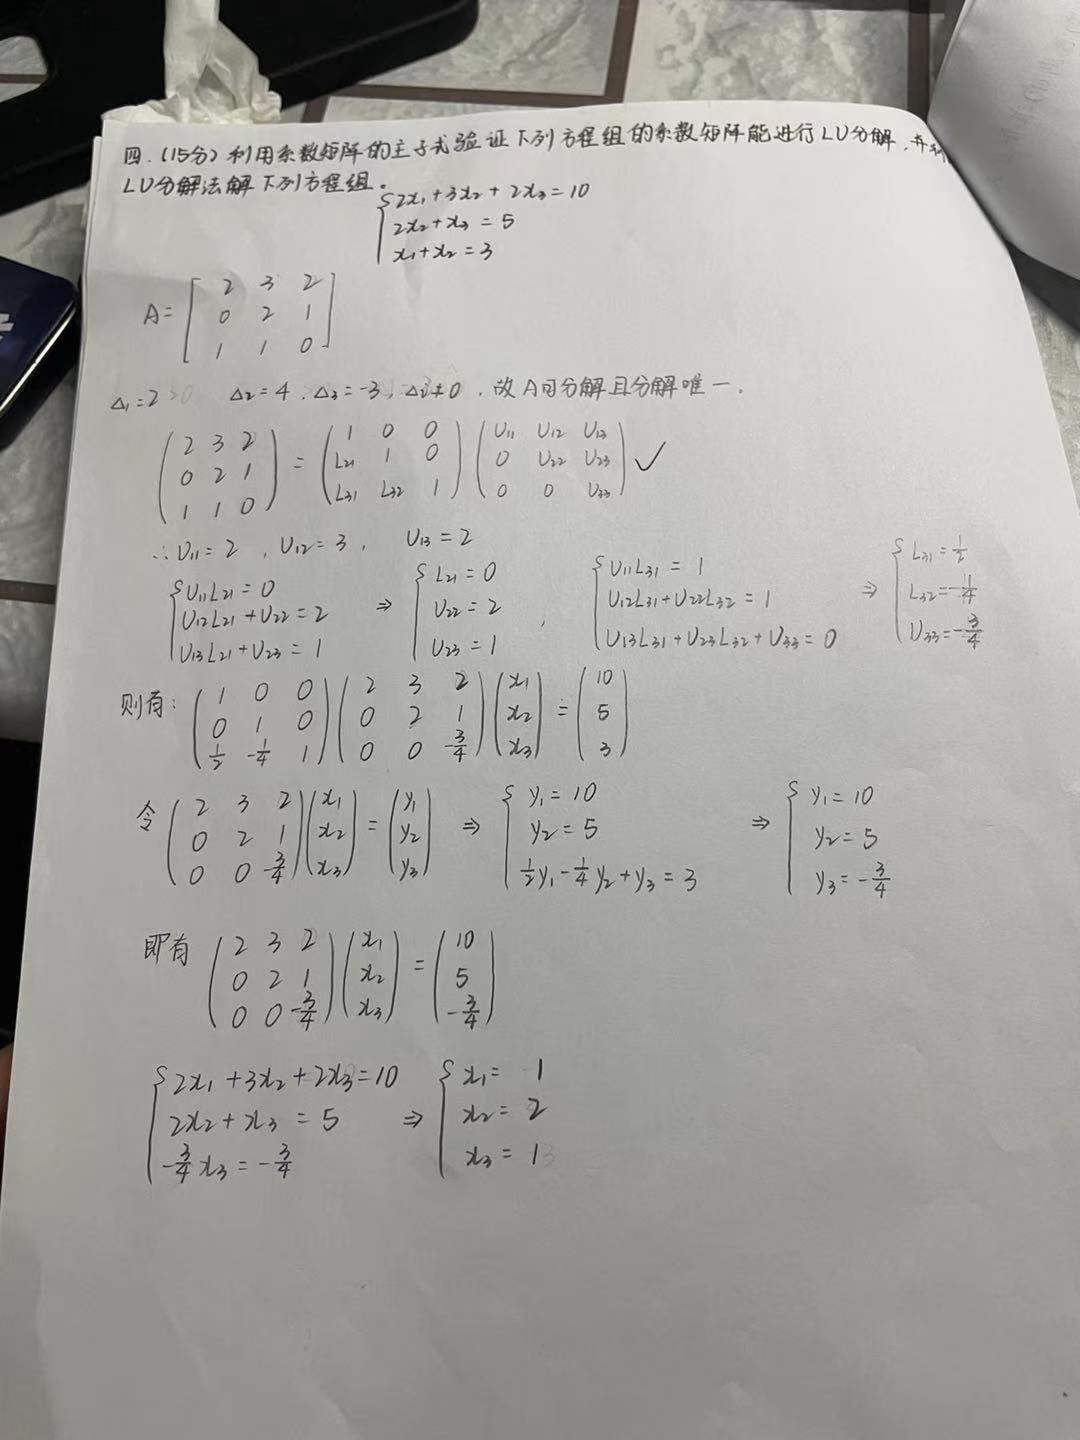 四.(15分)利用系数矩阵的主子式验证下列方程组的系数矩阵能进行LU分解,并利
LU分解法解下列方程组.
{2x₁+3x₂+2x₃=10
2x₂+x₃=5
x₁+x₂=3
A= [2 3 2
0 2 1
1 1 0]
Δ₁=2 Δ₂=4, Δ₃=-3, Δᵢ≠0, 故A可分解且分解唯一.
(2 3 2; 0 2 1; 1 1 0) = (1 0 0; L₂₁ 1 0; L₃₁ L₃₂ 1) (U₁₁ U₁₂ U₁₃; 0 U₂₂ U₂₃; 0 0 U₃₃) ✓
∴U₁₁=2, U₁₂=3, U₁₃=2
{U₁₁L₂₁=0; U₁₂L₂₁+U₂₂=2; U₁₃L₂₁+U₂₃=1 ⇒ {L₂₁=0; U₂₂=2; U₂₃=1, {U₁₁L₃₁=1; U₁₂L₃₁+U₂₂L₃₂=1; U₁₃L₃₁+U₂₃L₃₂+U₃₃=0 ⇒ {L₃₁=1/2; L₃₂=-1/4; U₃₃=-3/4
则有: (1 0 0; 0 1 0; 1/2 -1/4 1) (2 3 2; 0 2 1; 0 0 -3/4) (x₁; x₂; x₃) = (10; 5; 3)
令 (2 3 2; 0 2 1; 0 0 -3/4) (x₁; x₂; x₃) = (y₁; y₂; y₃) ⇒ {y₁=10; y₂=5; 1/2y₁-1/4y₂+y₃=3 ⇒ {y₁=10; y₂=5; y₃=-3/4
即有 (2 3 2; 0 2 1; 0 0 -3/4) (x₁; x₂; x₃) = (10; 5; -3/4)
{2x₁+3x₂+2x₃=10; 2x₂+x₃=5; -3/4x₃=-3/4 ⇒ {x₁=1; x₂=2; x₃=1